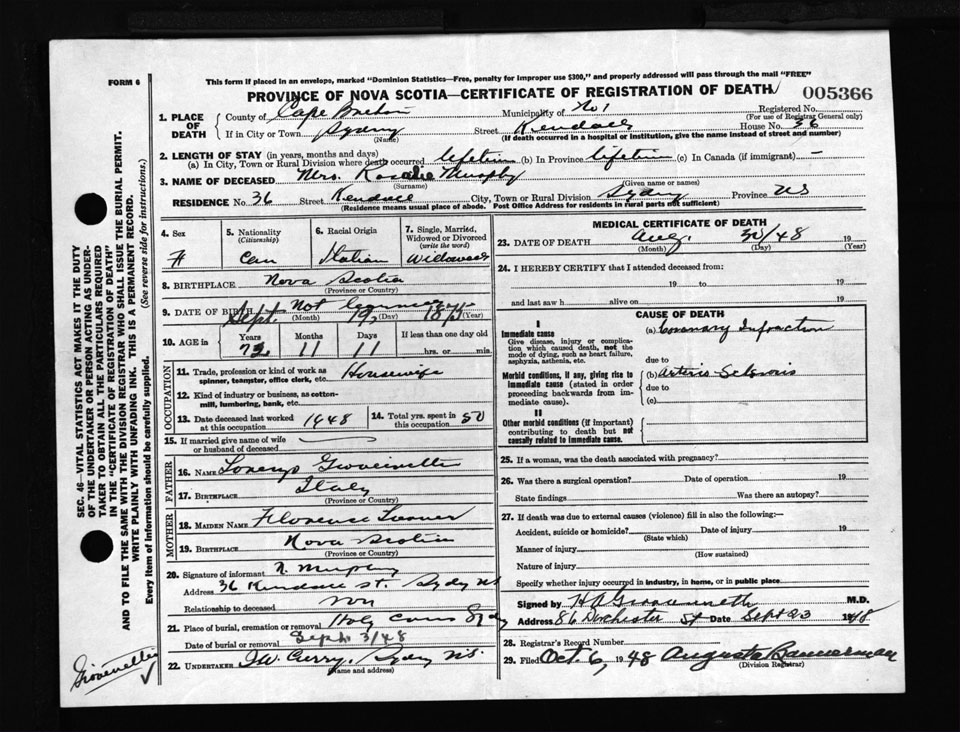 FORM 6
This form if placed in an envelope, marked "Dominion Statistics—Free, penalty for improper use $300," and properly addressed will pass through the mail "FREE"
PROVINCE OF NOVA SCOTIA—CERTIFICATE OF REGISTRATION OF DEATH
005366
1. PLACE OF DEATH
County of Cape Breton Municipality of No 1 Registered No.
(For use of Registrar General only)
If in City or Town Sydney Street Kendall House No. 36
(Name) (If death occurred in a hospital or institution, give the name instead of street and number)
2. LENGTH OF STAY (in years, months and days)
(a) In City, Town or Rural Division where death occurred lifetime (b) In Province lifetime (c) In Canada (if immigrant) —
3. NAME OF DECEASED Mrs. Rosalie Murphy
(Surname) (Given name or names)
RESIDENCE No. 36 Street Kendall City, Town or Rural Division Sydney Province NS
(Residence means usual place of abode. Post Office Address for residents in rural parts not sufficient)
4. Sex
F
5. Nationality
(Citizenship)
Can
6. Racial Origin
Italian
7. Single, Married, Widowed or Divorced
(write the word)
Widowed
8. BIRTHPLACE Nova Scotia
(Province or Country)
9. DATE OF BIRTH Sept. 19, 1875
(Month) (Day) (Year)
Not
10. AGE in
Years Months Days If less than one day old
72 11 11 hrs. or min.
OCCUPATION
11. Trade, profession or kind of work as
spinner, teamster, office clerk, etc. Housewife
12. Kind of industry or business, as cotton-
mill, lumbering, bank, etc.
13. Date deceased last worked at this occupation 1948
14. Total yrs. spent in this occupation 50
15. If married give name of wife
or husband of deceased
FATHER
16. NAME Lorenzo Giovinetti
17. BIRTHPLACE Italy
(Province or Country)
MOTHER
18. MAIDEN NAME Florence
19. BIRTHPLACE Nova Scotia
(Province or Country)
20. Signature of informant N. Murphy
Address 36 Kendall St. Sydney NS
Relationship to deceased son
21. Place of burial, cremation or removal Holy Cross Sydney
Date of burial or removal Sept 3/48
22. UNDERTAKER W. Curry, Sydney NS.
(Name and address)
MEDICAL CERTIFICATE OF DEATH
23. DATE OF DEATH Aug. 30/48 19
(Month) (Day) (Year)
24. I HEREBY CERTIFY that I attended deceased from:
19 to 19
and last saw h alive on 19
CAUSE OF DEATH
I
Immediate cause
Give disease, injury or complica-
tion which caused death, not the
mode of dying, such as heart failure,
asphyxia, asthenia, etc.
(a) Coronary Infarction
due to
Morbid conditions, if any, giving rise to
immediate cause (stated in order
proceeding backwards from im-
mediate cause).
(b) Arterio
due to
(c)
II
Other morbid conditions (if important)
contributing to death but not
causally related to immediate cause.
25. If a woman, was the death associated with pregnancy?
26. Was there a surgical operation? Date of operation 19
State findings Was there an autopsy?
27. If death was due to external causes (violence) fill in also the following:—
Accident, suicide or homicide? Date of injury 19
(State which)
Manner of injury
(How sustained)
Nature of injury
Specify whether injury occurred in industry, in home, or in public place
Signed by M.D.
Address 86 Dorchester St Date Sept 23 1948
28. Registrar's Record Number
29. Filed Oct. 6, 1948 Augusta Bannerman
(Division Registrar)
SEC. 46—VITAL STATISTICS ACT MAKES IT THE DUTY
OF THE UNDERTAKER OR PERSON ACTING AS UNDER-
TAKER TO OBTAIN ALL THE PARTICULARS REQUIRED
IN THE "CERTIFICATE OF REGISTRATION OF DEATH"
AND TO FILE THE SAME WITH THE DIVISION REGISTRAR WHO SHALL ISSUE THE BURIAL PERMIT.
WRITE PLAINLY WITH UNFADING INK. THIS IS A PERMANENT RECORD.
Every item of information should be carefully supplied. (See reverse side for instructions.)